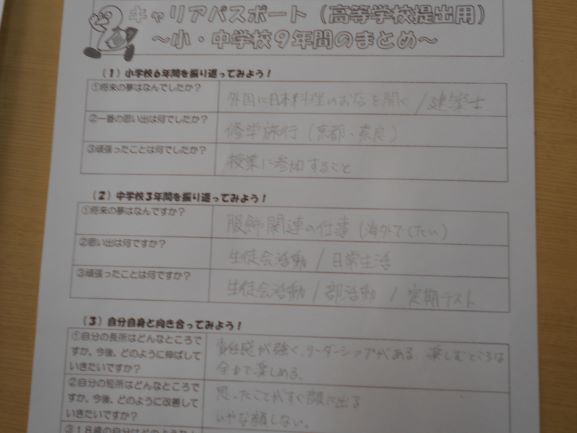 キャリアパスポート（高等学校提出用）
～小・中学校９年間のまとめ～
（１）小学校６年間を振り返ってみよう！
①将来の夢はなんでしたか？
外国に日本料理のお店を開く / 建築士
②一番の思い出は何でしたか？
修学旅行（京都、奈良）
③頑張ったことは何でしたか？
授業に参加すること
（２）中学校３年間を振り返ってみよう！
①将来の夢はなんですか？
服飾関連の仕事（海外でしたい）
②思い出は何ですか？
生徒会活動 / 日常生活
③頑張ったことは何ですか？
生徒会活動 / 部活動 / 定期テスト
（３）自分自身と向き合ってみよう！
①自分の長所はどんなところで
すか。今後、どのように伸ばして
いきたいですか？
責任感が強く、リーダーシップがある。楽しむところは
全力で楽しめる。
②自分の短所はどんなところで
すか。今後、どのように改善して
いきたいですか？
思ったことがすぐ顔に出る
いやな顔しない。
③１８歳の自分はどの